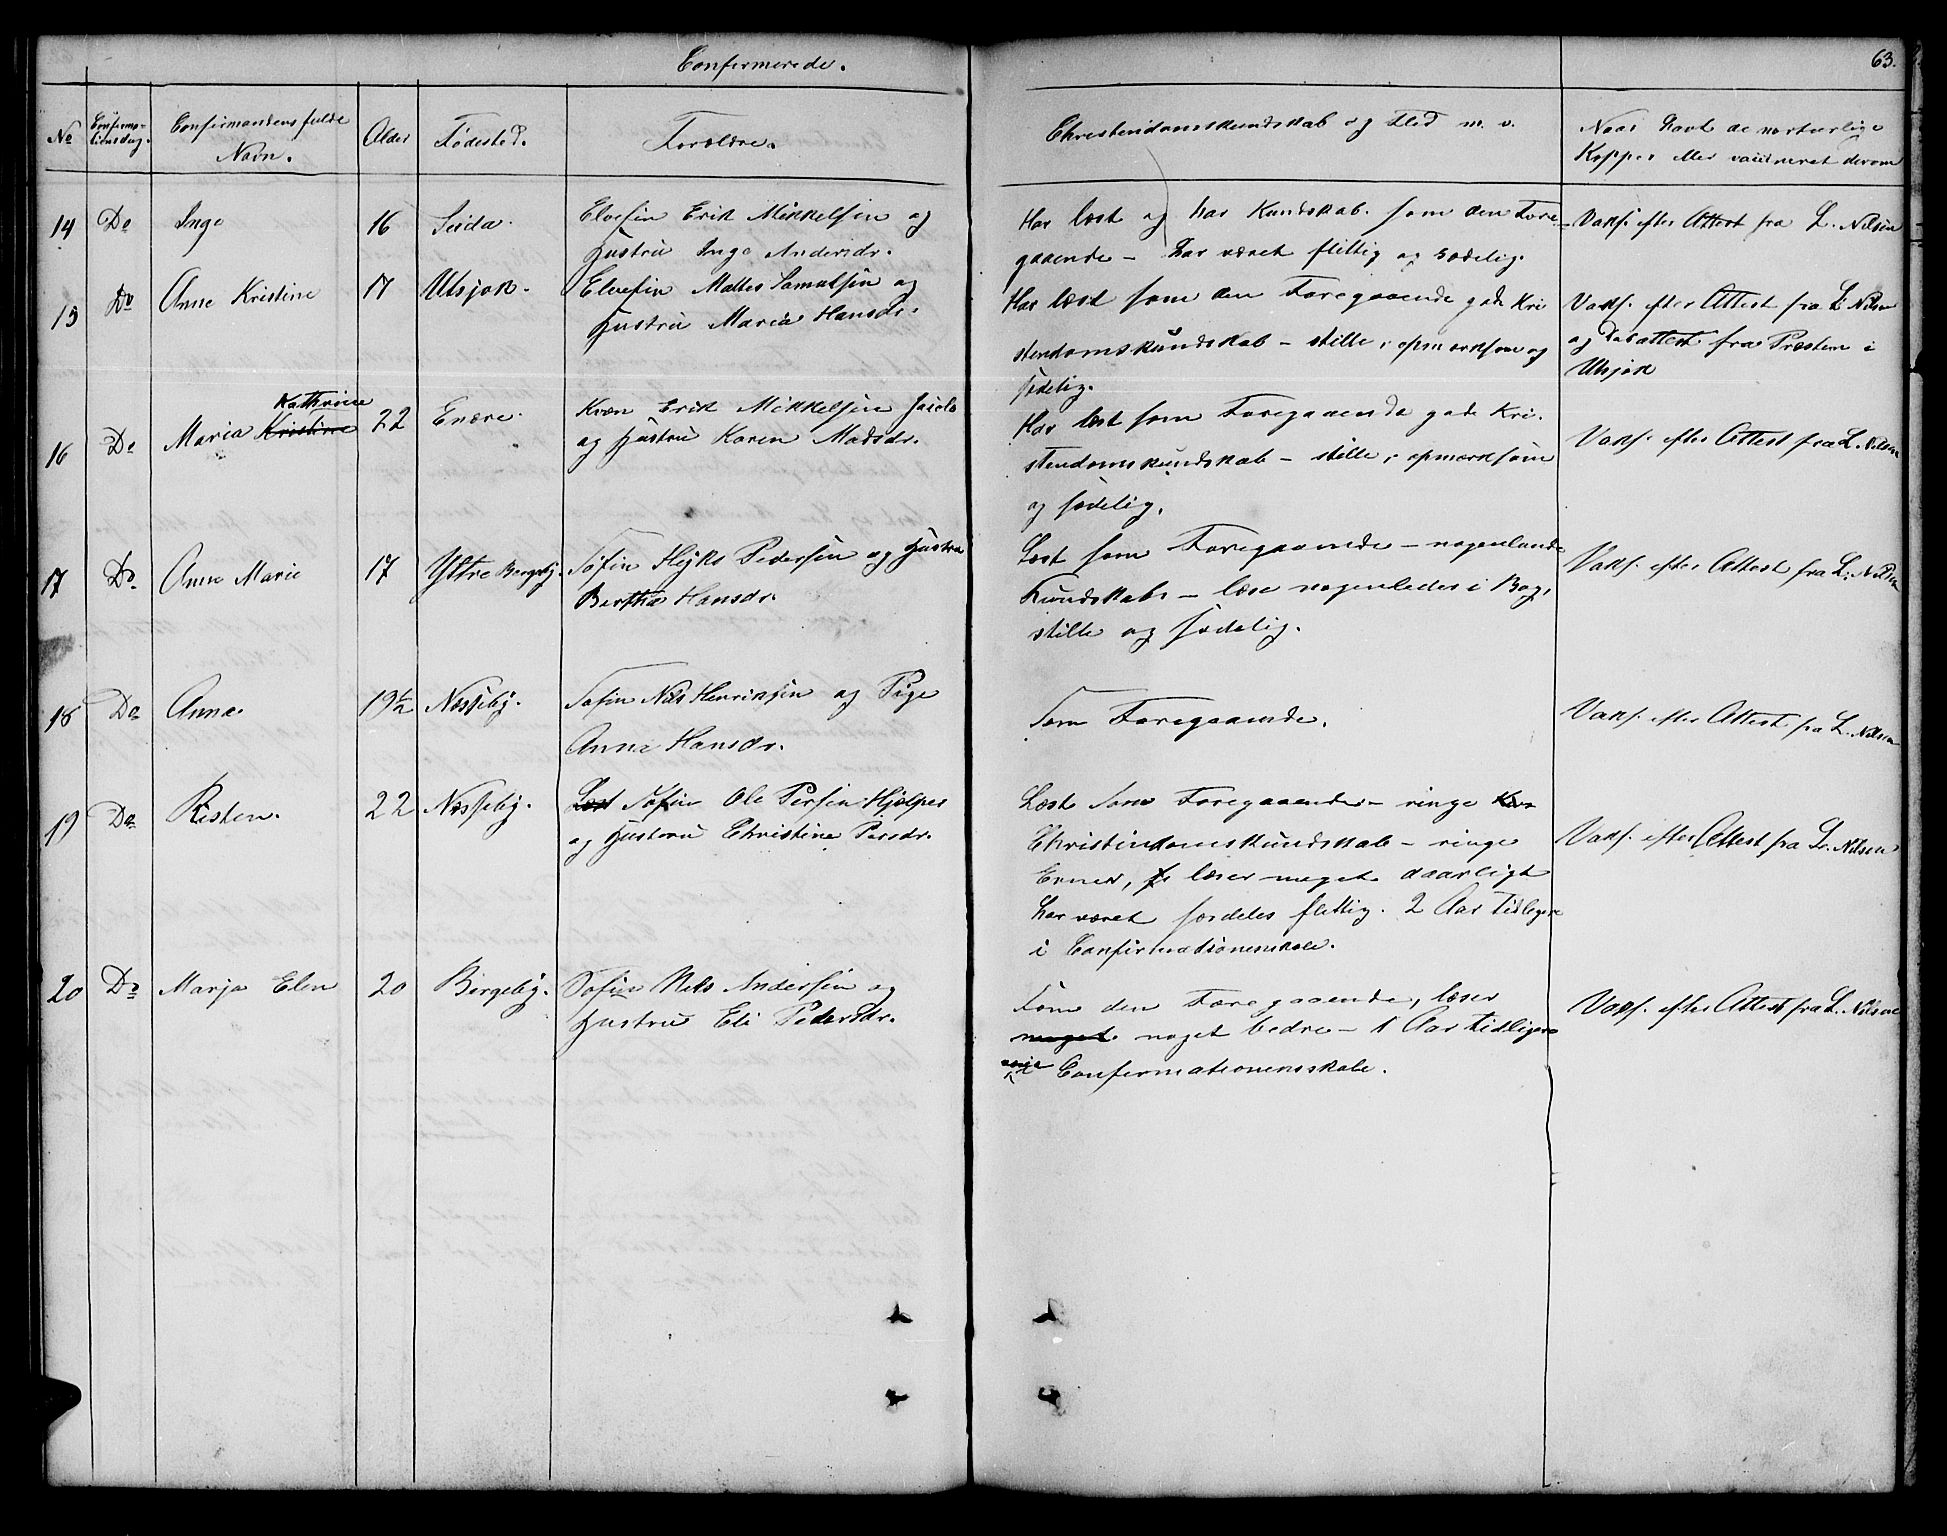 Confirmerede.
63.
No
Confirma-
tionsdag.
Confirmandens fulde
Navn.
Alder
Fødested.
Forældre.
Christendomskundskab og Flid m. v.
Naar havt de naturlige
Kopper eller vaccineret derom
14 Do Inga 16 Seida. Elvefin Erik Mikkelsen og
Hustru Inga Andersdr.
Har læst og har Kundskab som den Fore-
gaaende - har været flittig og sædelig.
Vaks. efter Attest fra L. Nilsen
15 Do Anne Kristine 17 Utsjok. Elvefin Mattis Samulsen og
Hustru Maria Hansdr.
Har læst som den Foregaaende gode Kri
stendomskundskab - stille, opmærksom og
sædelig.
Vaks. efter Attest fra L. Nilsen
og Dabattest fra Præsten i
Utsjok
16 Do Maria Kristine Kathrine 22 Enare. Kvæn Erik Mikkelsen
og Hustru Karen Madsdr.
Har læst som Foregaaende gode Kri-
stendomskundskab - stille, opmærksom
og sædelig.
Vaks. efter Attest fra L. Nilsen
17 Do Anne Marie 17 Yttre Bergeby. Søfin Hejks Pedersen og Hustru
Bertha Hansdr.
Læst som Foregaaende - nogenlunde
Kundskab - læse nogenledes i Bog,
stille og sædelig.
Vaks. efter Attest fra L. Nilsen
18 Do Anna 19½ Næsseby. Søfin Nils Henriksen og Pige
Anna Hansdr.
Som Foregaaende.
Vaks. efter Attest fra L. Nilsen
19 Do Risten. 22 Næsseby. Læst Søfin Ole Persen Hjelper
og Hustru Christine Persdr.
Læst som Foregaaende - ringe
Christendomskundskab - ringe
Evner, læser meget daarligt
har været særdeles flittig. 2 Aar tidligere
i Confirmationsskole.
Vaks. efter Attest fra L. Nilsen
20 Do Marja Elen 20 Bergeby. Søfin Nils Andersen og
Hustru Eli Pedersdr.
Som den Foregaaende, læser
meget noget bedre - 1 Aar tidligere
i Confirmationensskole.
Vaks. efter Attest fra L. Nilsen